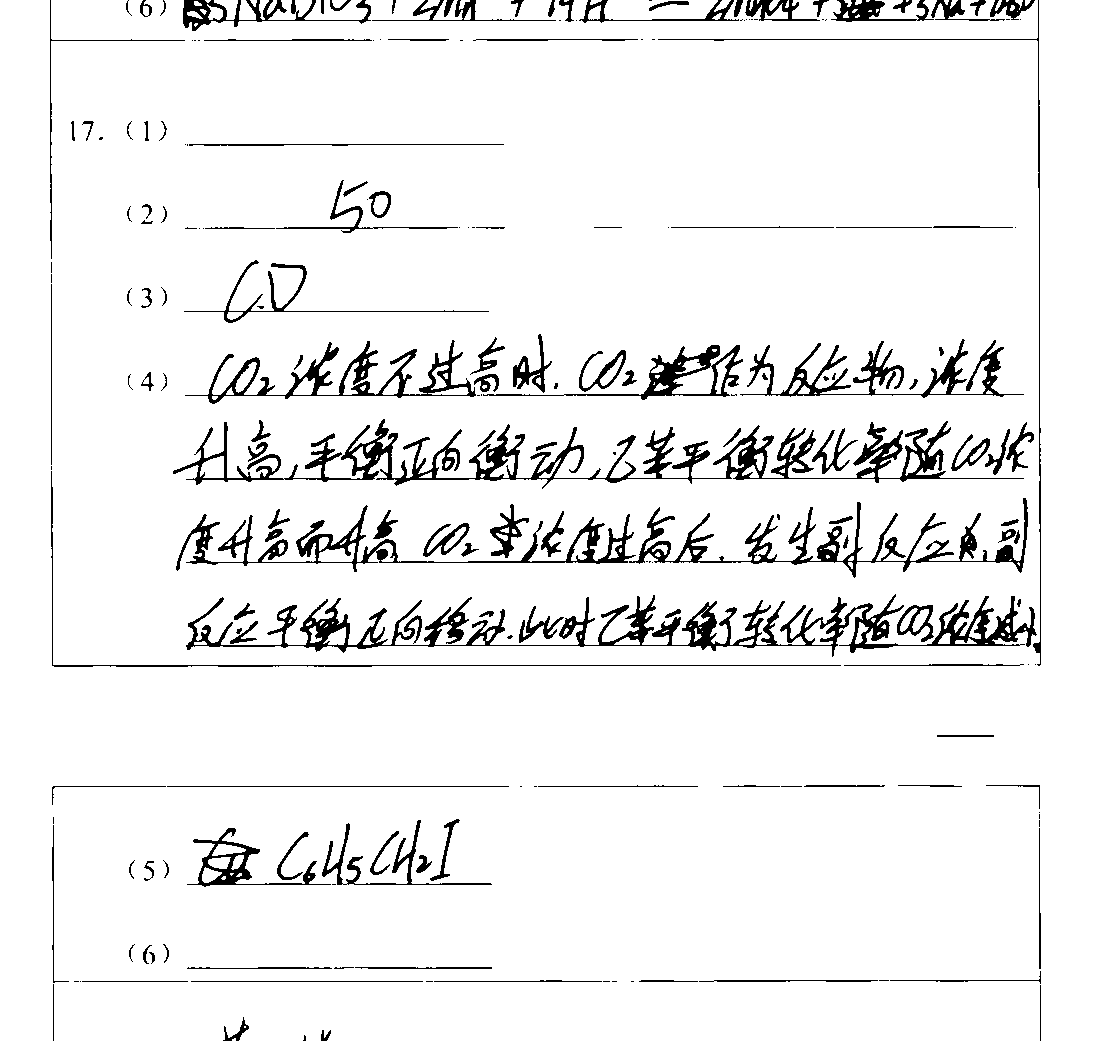 (6) 5NaBiO₃ + 2Mn + 14H =
17. (1)
(2) 50
(3) C.D
(4) CO₂浓度不过高时.CO₂作为反应物,浓度
升高,平衡正向衡动,乙苯平衡转化率随CO₂浓
度升高而升高 CO₂浓度过高后.发生副反应,副
反应平衡正向移动.此时乙苯平衡转化率随CO₂浓度减小.
(5) C₆H₅CH₂I
(6)